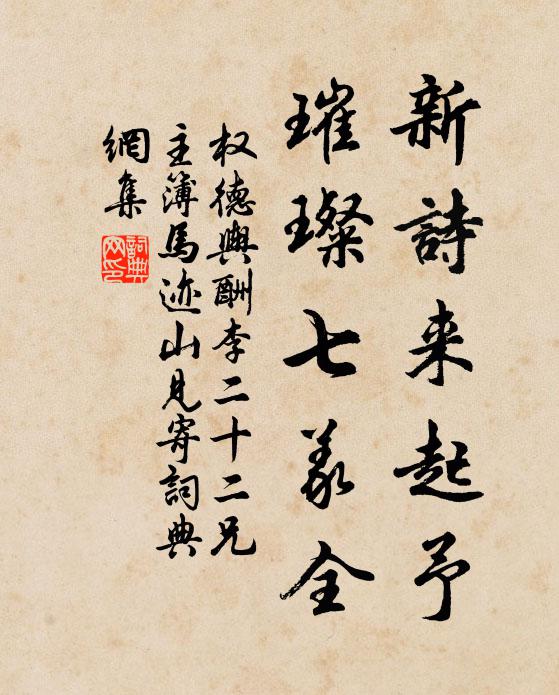 新詩来起予
璀璨七義全
权德輿酬李二十二兄
主簿馬迹山見寄詞典
網集
詞典網印